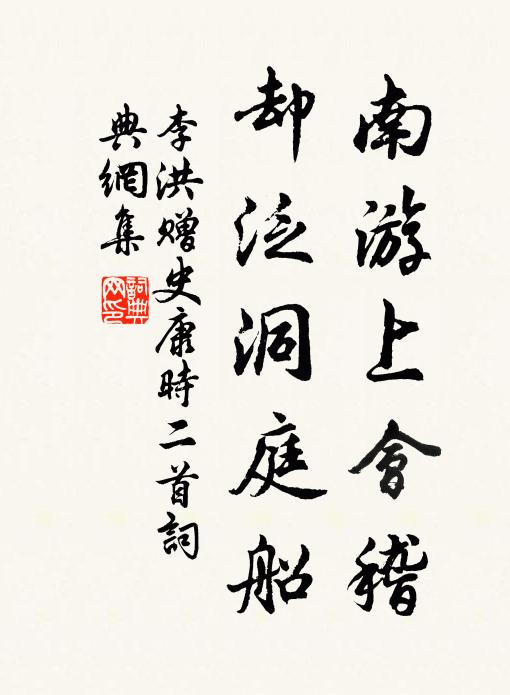 南游上會稽
却泛洞庭船
李洪赠史康時二首詞
典網集
詞典
网印